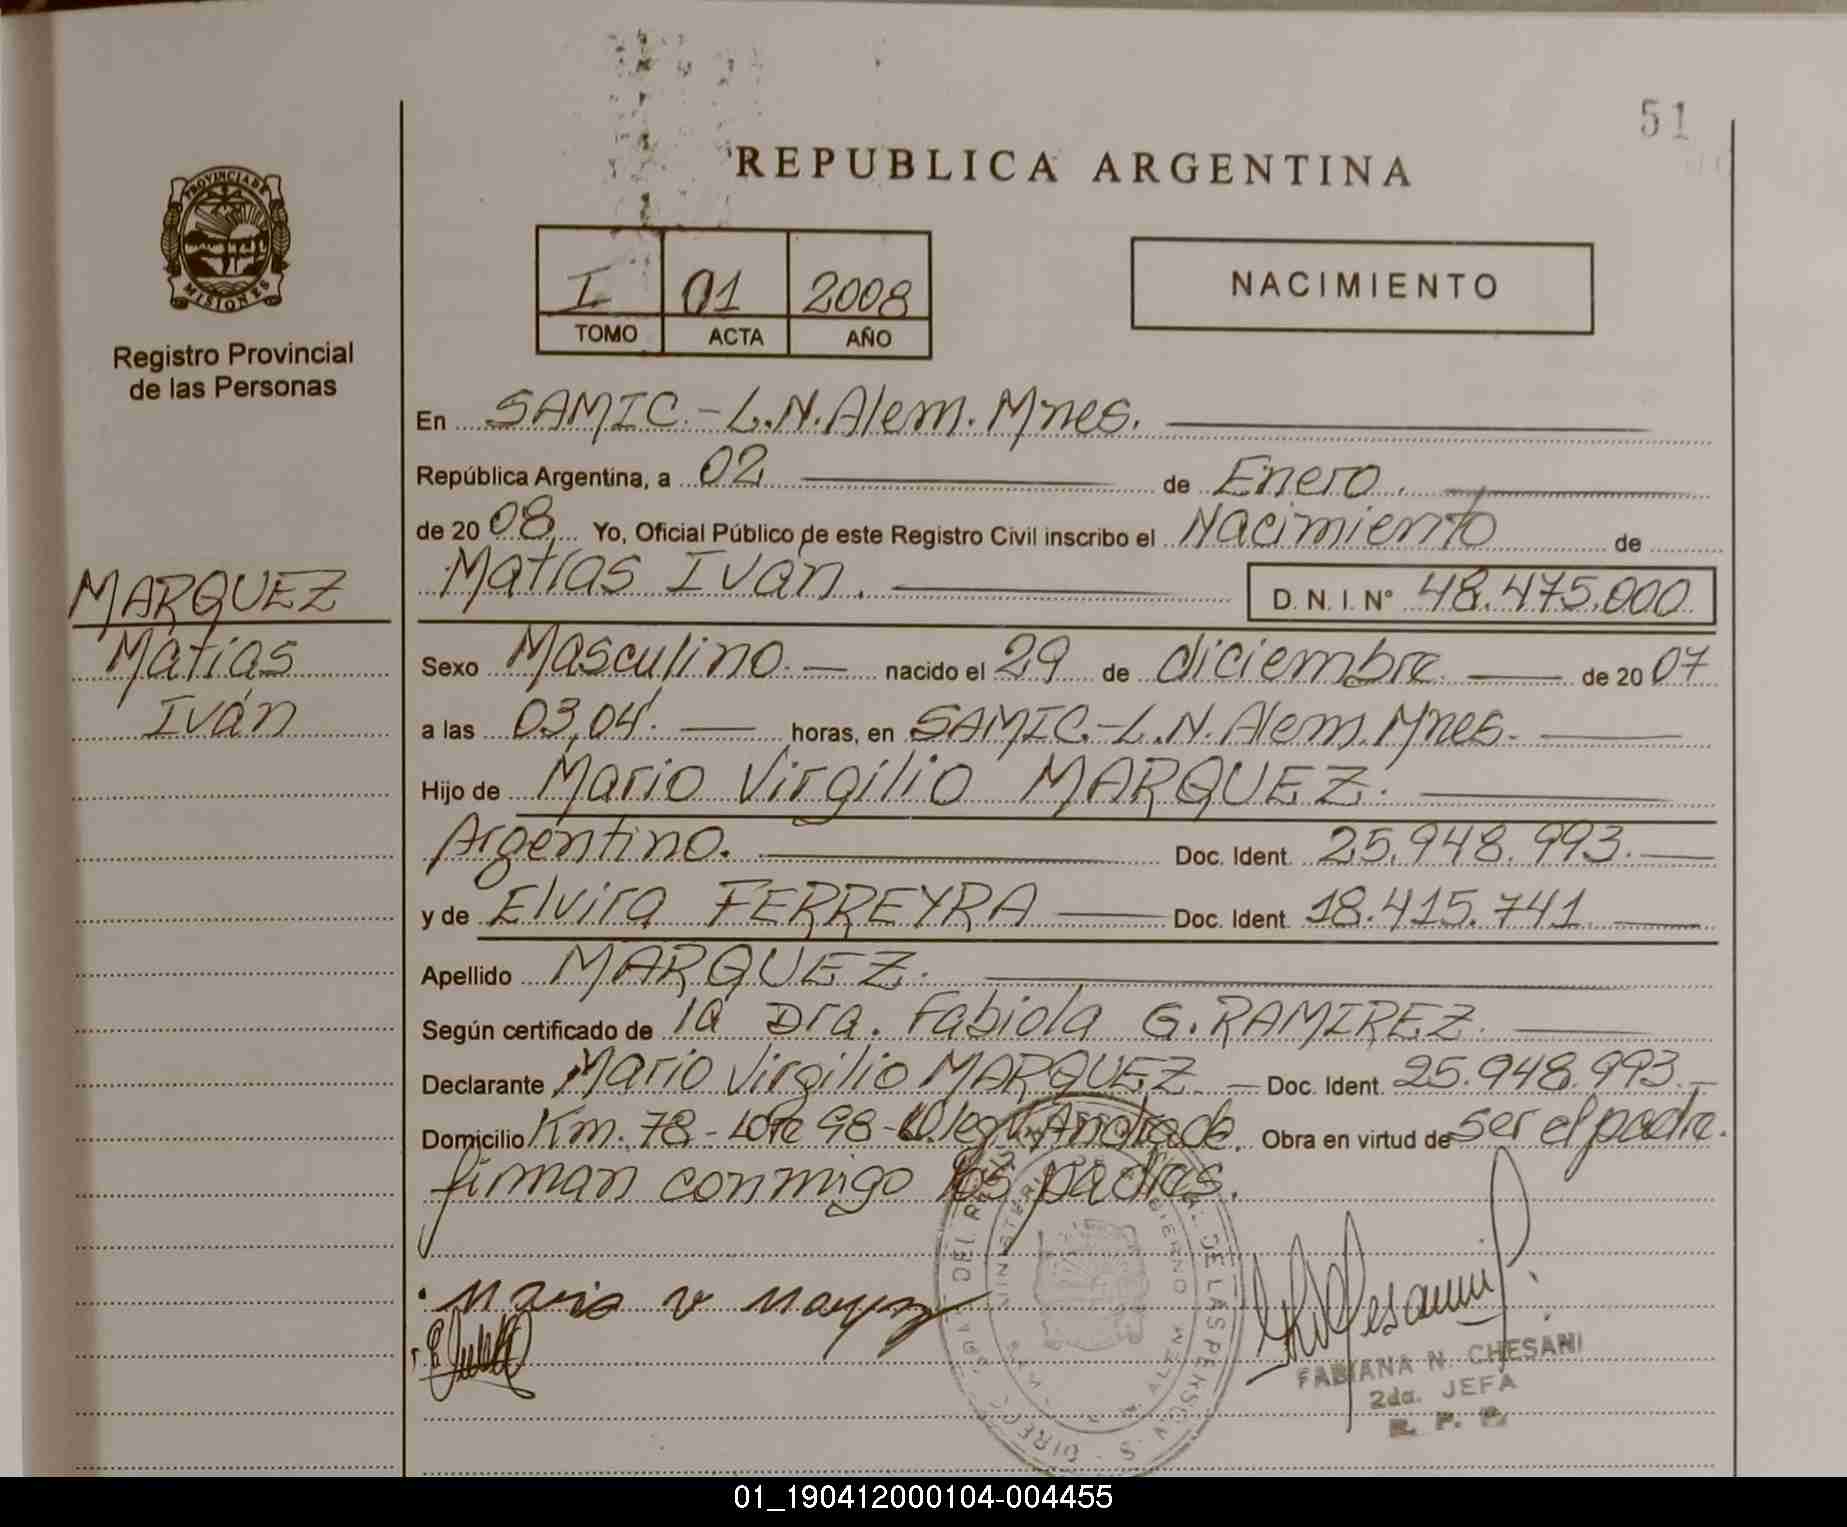 51
REPUBLICA ARGENTINA
PROVINCIA DE
MISIONES
Registro Provincial
de las Personas
I 01 2008
TOMO ACTA AÑO
NACIMIENTO
En SAMIC.-L.N.Alem.Mnes.
República Argentina, a 02 de Enero.
de 20 08. Yo, Oficial Público de este Registro Civil inscribo el Nacimiento de
Matías Iván. D. N. I. N° 48.475.000
MARQUEZ
Matías
Iván
Sexo Masculino. nacido el 29 de diciembre de 20 07
a las 03,04'. horas, en SAMIC.-L.N.Alem.Mnes.
Hijo de Mario Virgilio MARQUEZ.
Argentino. Doc. Ident. 25.948.993.
y de Elvira FERREYRA Doc. Ident. 18.415.741
Apellido MARQUEZ.
Según certificado de la Dra. Fabiola G. RAMIREZ.
Declarante Mario Virgilio MARQUEZ. Doc. Ident. 25.948.993.
Domicilio Km. 78 - Lote 98 - Andrade. Obra en virtud de ser el padre.
firman conmigo los padres.
Mario v
FABIANA N. CHESANI
2da. JEFA
R. P. P.
01_190412000104-004455